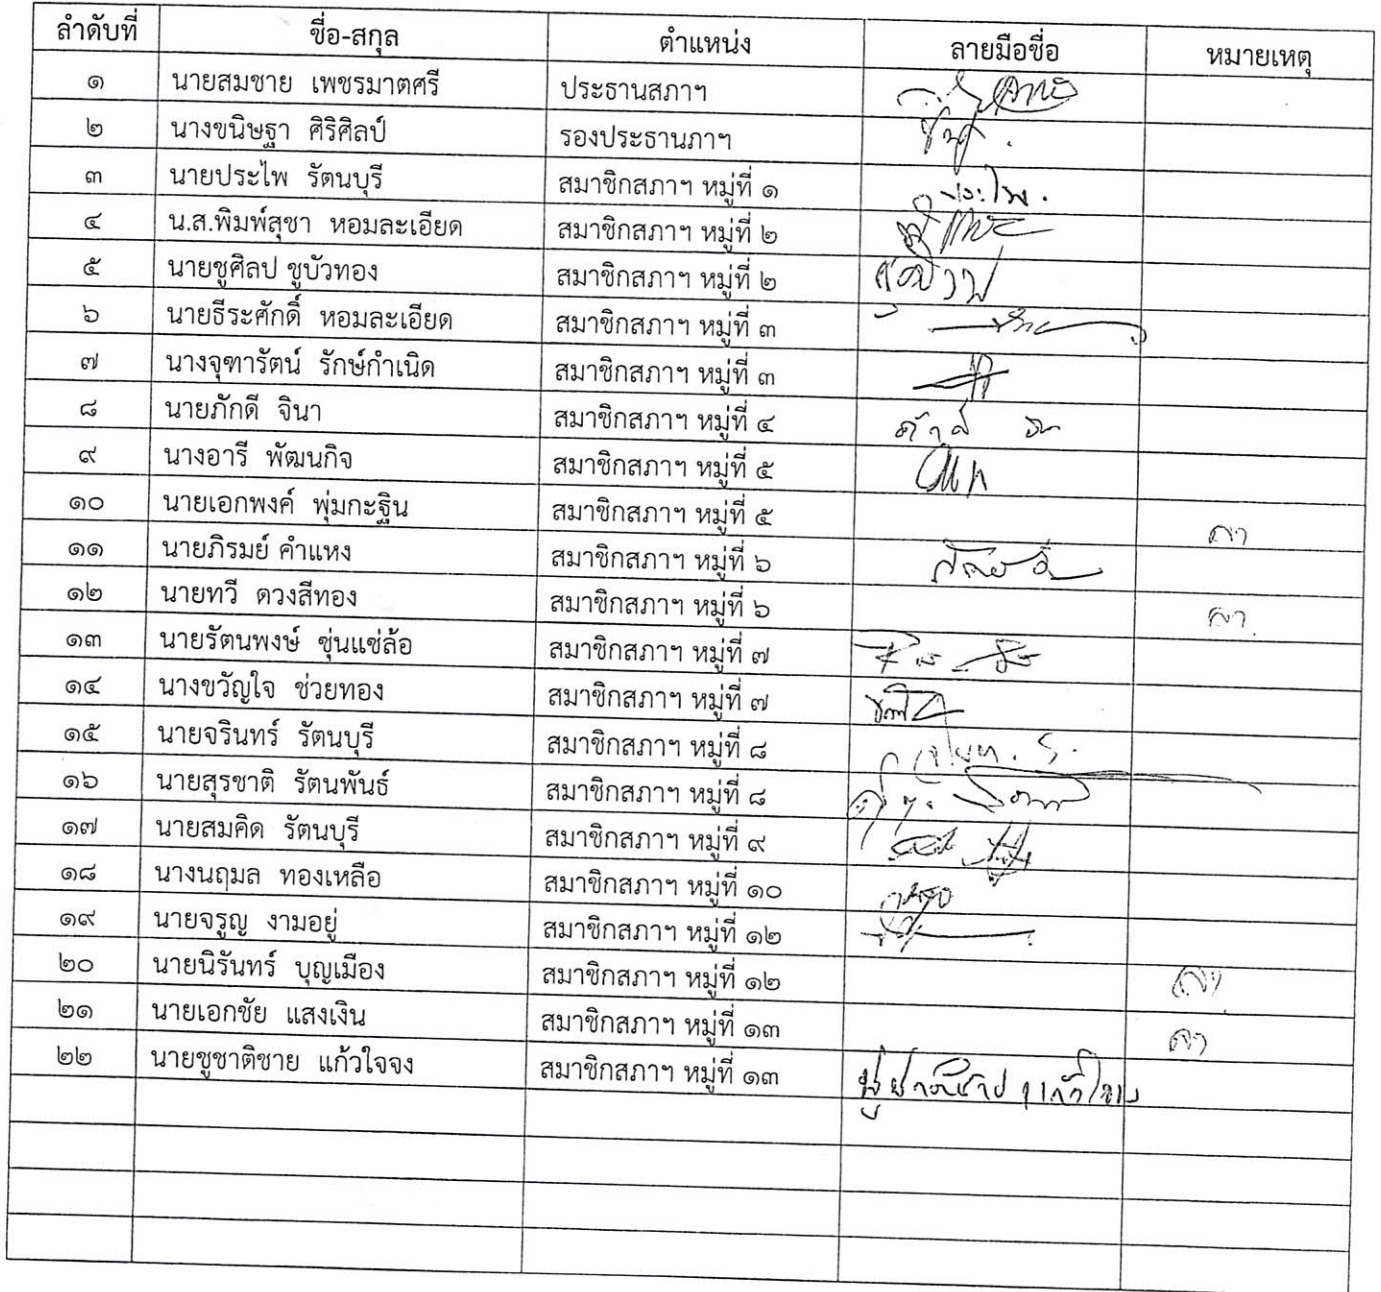 ลำดับที่ ชื่อ-สกุล ตำแหน่ง ลายมือชื่อ หมายเหตุ
๑ นายสมชาย เพชรมาตศรี ประธานสภาฯ
๒ นางขนิษฐา ศิริศิลป์ รองประธานภาฯ
๓ นายประไพ รัตนบุรี สมาชิกสภาฯ หมู่ที่ ๑ ประไพ.
๔ น.ส.พิมพ์สุชา หอมละเอียด สมาชิกสภาฯ หมู่ที่ ๒
๕ นายชูศิลป ชูบัวทอง สมาชิกสภาฯ หมู่ที่ ๒
๖ นายธีระศักดิ์ หอมละเอียด สมาชิกสภาฯ หมู่ที่ ๓
๗ นางจุฑารัตน์ รักษ์กำเนิด สมาชิกสภาฯ หมู่ที่ ๓
๘ นายภักดี จินา สมาชิกสภาฯ หมู่ที่ ๔
๙ นางอารี พัฒนกิจ สมาชิกสภาฯ หมู่ที่ ๕
๑๐ นายเอกพงค์ พุ่มกะฐิน สมาชิกสภาฯ หมู่ที่ ๕ ลา
๑๑ นายภิรมย์ คำแหง สมาชิกสภาฯ หมู่ที่ ๖
๑๒ นายทวี ดวงสีทอง สมาชิกสภาฯ หมู่ที่ ๖ ลา
๑๓ นายรัตนพงษ์ ซุ่นแซ่ล้อ สมาชิกสภาฯ หมู่ที่ ๗
๑๔ นางขวัญใจ ช่วยทอง สมาชิกสภาฯ หมู่ที่ ๗
๑๕ นายจรินทร์ รัตนบุรี สมาชิกสภาฯ หมู่ที่ ๘
๑๖ นายสุรชาติ รัตนพันธ์ สมาชิกสภาฯ หมู่ที่ ๘
๑๗ นายสมคิด รัตนบุรี สมาชิกสภาฯ หมู่ที่ ๙
๑๘ นางนฤมล ทองเหลือ สมาชิกสภาฯ หมู่ที่ ๑๐
๑๙ นายจรูญ งามอยู่ สมาชิกสภาฯ หมู่ที่ ๑๒
๒๐ นายนิรันทร์ บุญเมือง สมาชิกสภาฯ หมู่ที่ ๑๒ ลา
๒๑ นายเอกชัย แสงเงิน สมาชิกสภาฯ หมู่ที่ ๑๓ ลา
๒๒ นายชูชาติชาย แก้วใจจง สมาชิกสภาฯ หมู่ที่ ๑๓